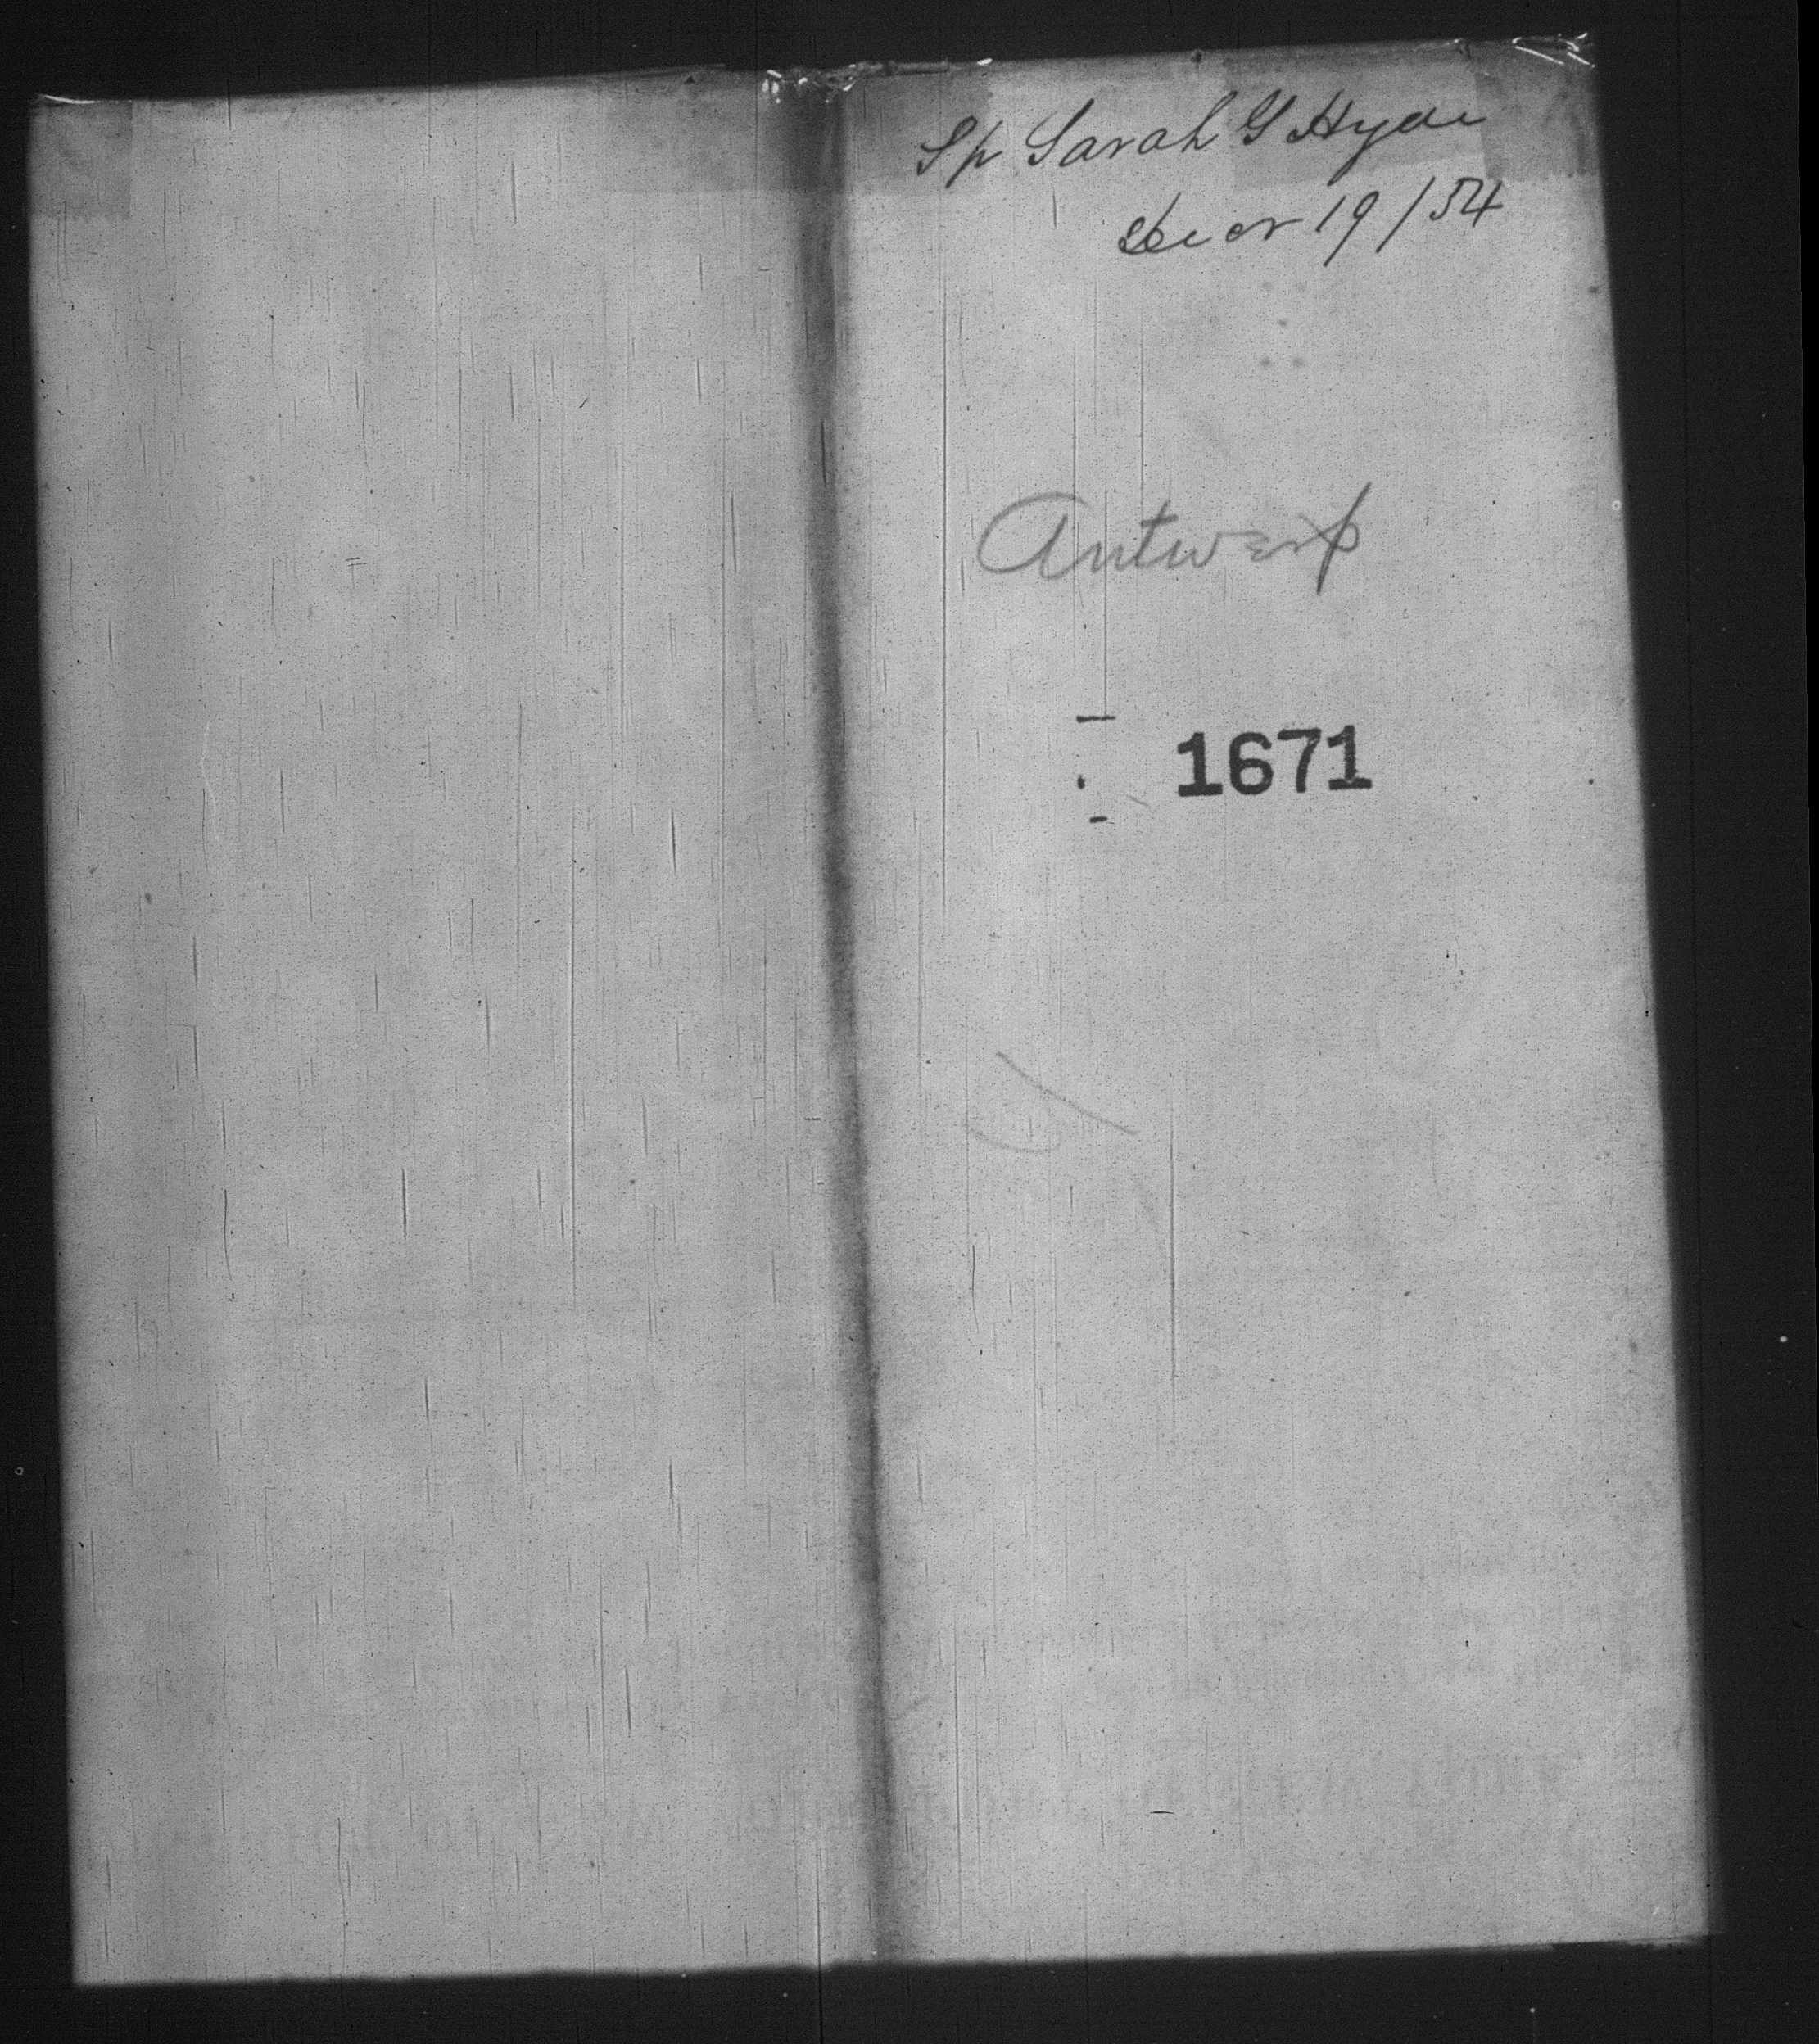 Sp Sarah G Hyde
19/54
Antwerp
1671